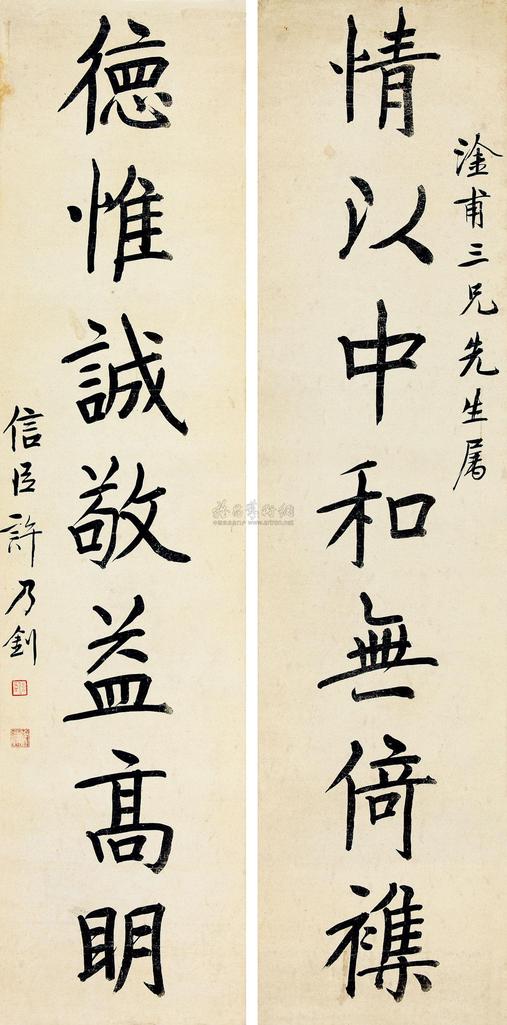 淦甫三兄先生属
情以中和無倚襍
德惟誠敬益高明
信臣許乃釗
www.artron.net